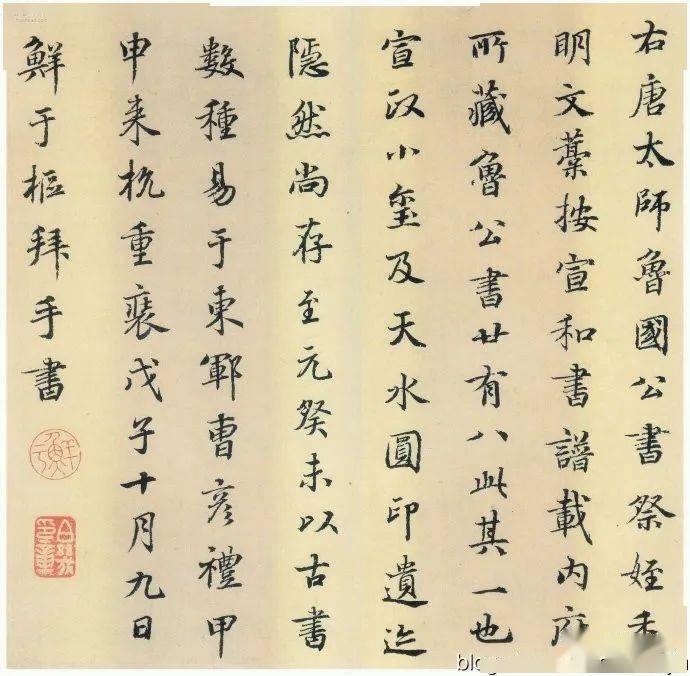 右唐太師魯國公書祭姪季
明文藁按宣和書譜載內府
所藏魯公書廿有八此其一也
宣政小璽及天水圓印遺迹
隠然尚存至元癸未以古書
數種易于東鄆曹彦禮甲
申来杭重裝戊子十月九日
鮮于樞拜手書
blog